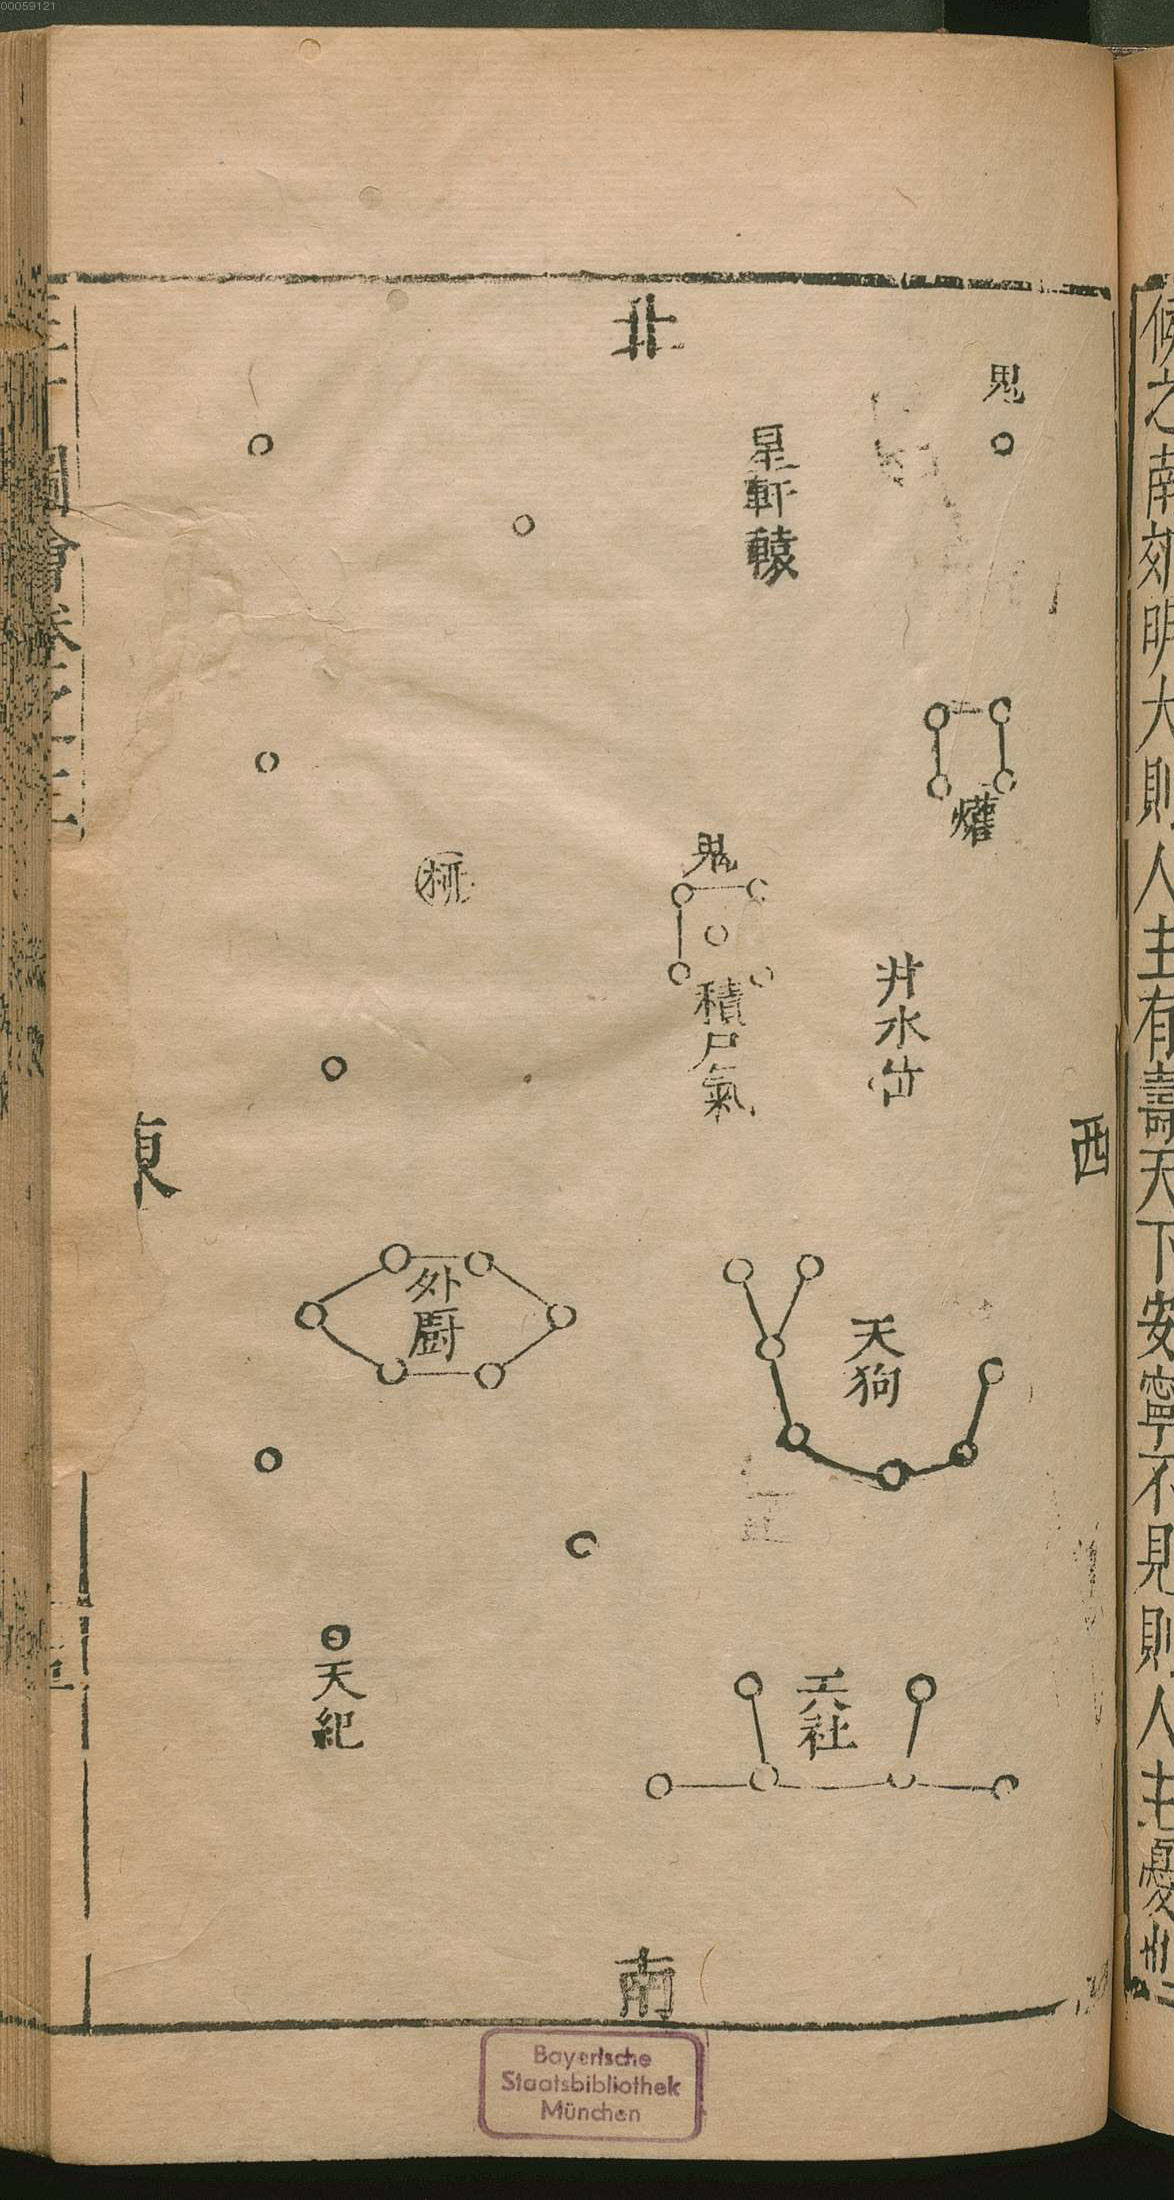 00059121
候之南郊明大則人主有壽天下安寧不見則人主憂
北
鬼
星軒轅
爟
鬼
積尸氣
井水位
西
東
外廚
天狗
天紀
天社
南
圖會卷之
Bayerische
Staatsbibliothek
München